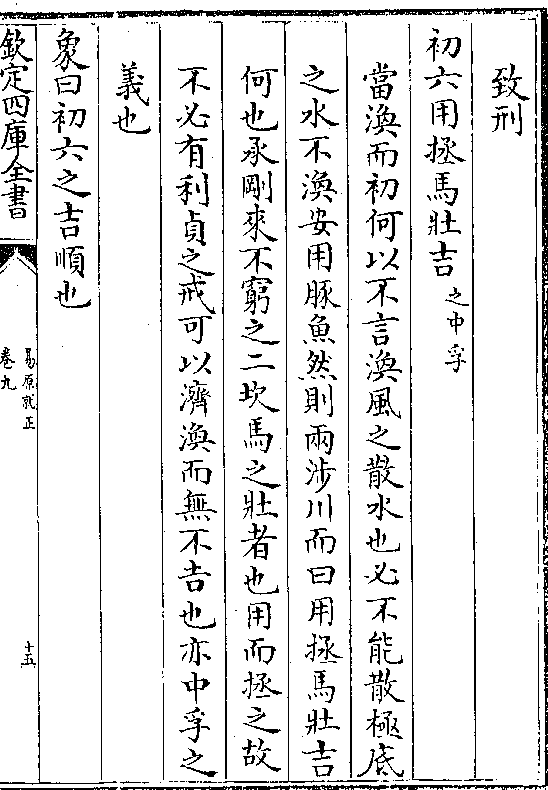 致刑
初六用拯馬壯吉之中孚
當渙而初何以不言渙風之散水也必不能散極底
之水不渙安用豚魚然則兩涉川而曰用拯馬壯吉
何也承剛來不窮之二坎馬之壯者也用而拯之故
不必有利貞之戒可以濟渙而無不吉也亦中孚之
義也
象曰初六之吉順也
欽定四庫全書
易原就正
卷九
十五